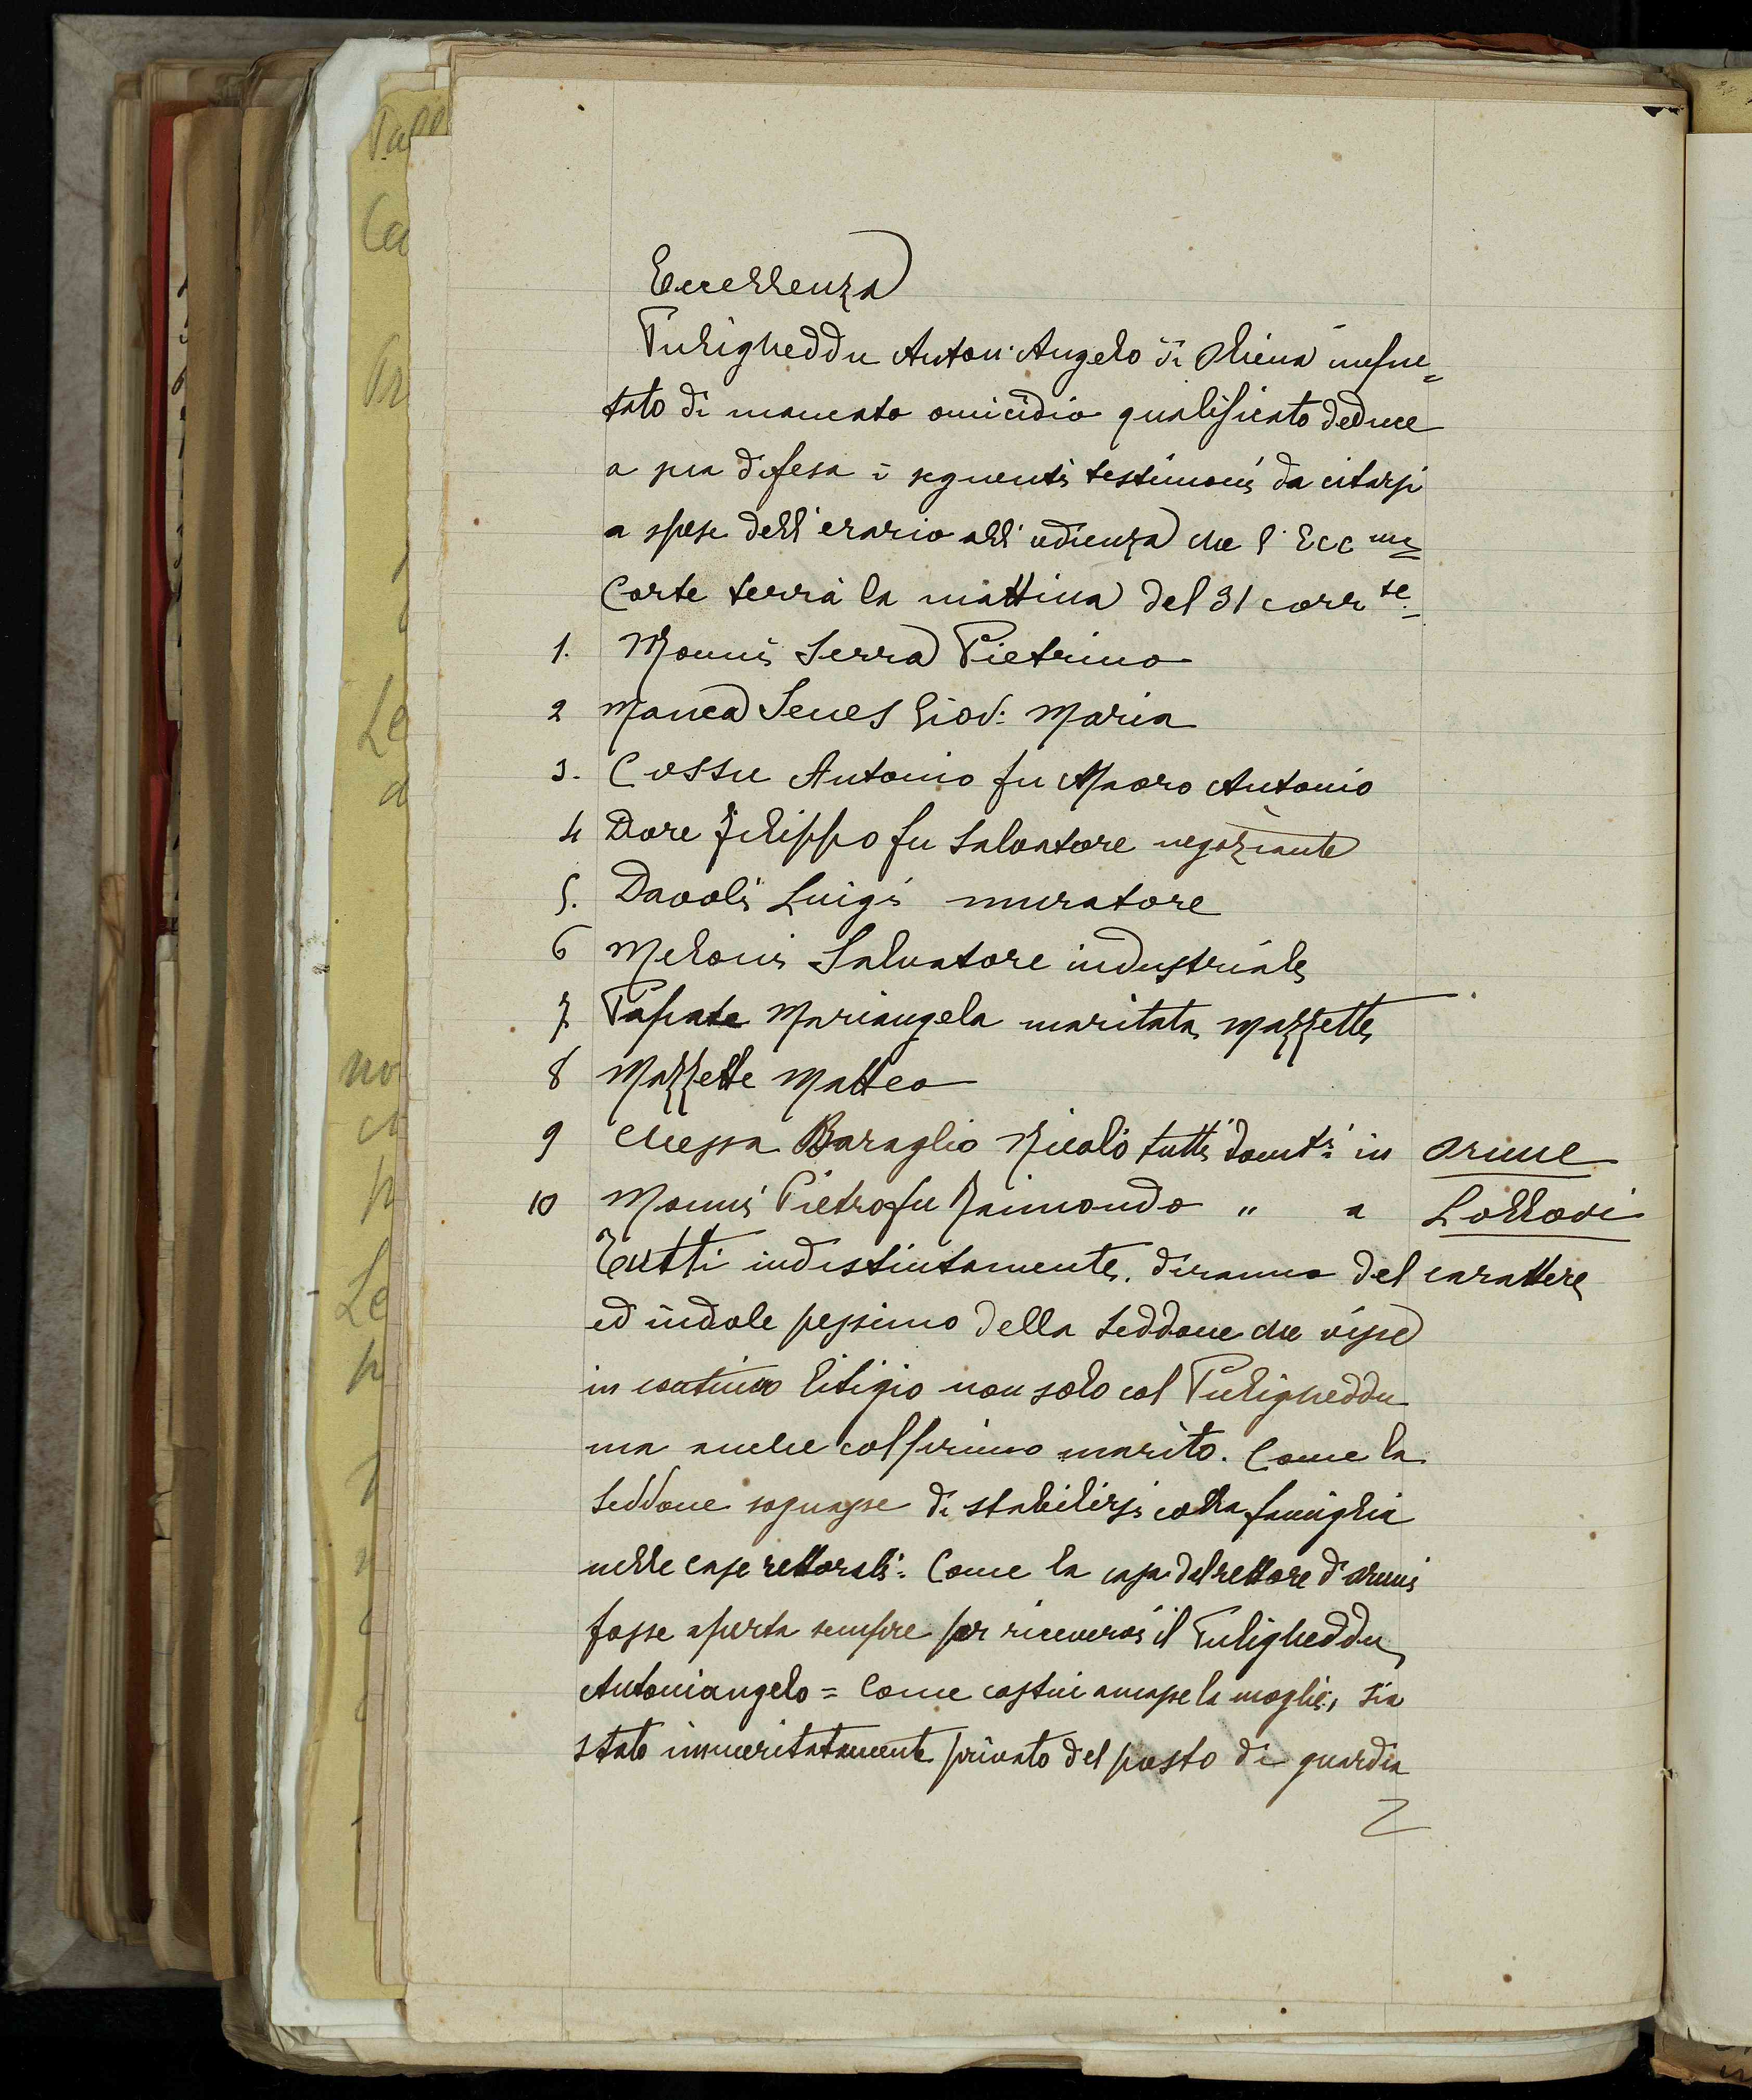 Eccellenza
Puligheddu Anton Angelo di Oliena impu=
tato di mancato omicidio qualificato deduce
a sua difesa i seguenti testimoni da citarsi
a spese dell'erario all'udienza che l'Ecc ma
Corte terrà la mattina del 31 corr te.
1. Monni Serra Pietrino
2 Manca Senes Giov: Maria
3. Cossu Antonio fu Mauro Antonio
4 Dore Filippo fu Salvatore negoziante
5. Davoli Luigi muratore
6 Meloni Salvatore industriale
7 Mariangela maritata Mazzette
8 Mazzette Matteo
9 Chessa Baraglio Nicolò tutti domti in Orune
10 Monni Pietro fu Raimondo " a Lollovi
Tutti indistintamente. diranno del carattere
ed indole pessimo della Seddone che visse
in continuo litigio non solo col Puligheddu
ma anche col primo marito. Come la
Seddone sognasse di stabilirsi colla famiglia
nelle case rettorali. Come la casa del rettore d'Orune
fosse aperta sempre per ricevervi il Puligheddu
Antoniangelo = Come costui amasse la moglie, sia
stato immeritatamente privato del posto di guardia